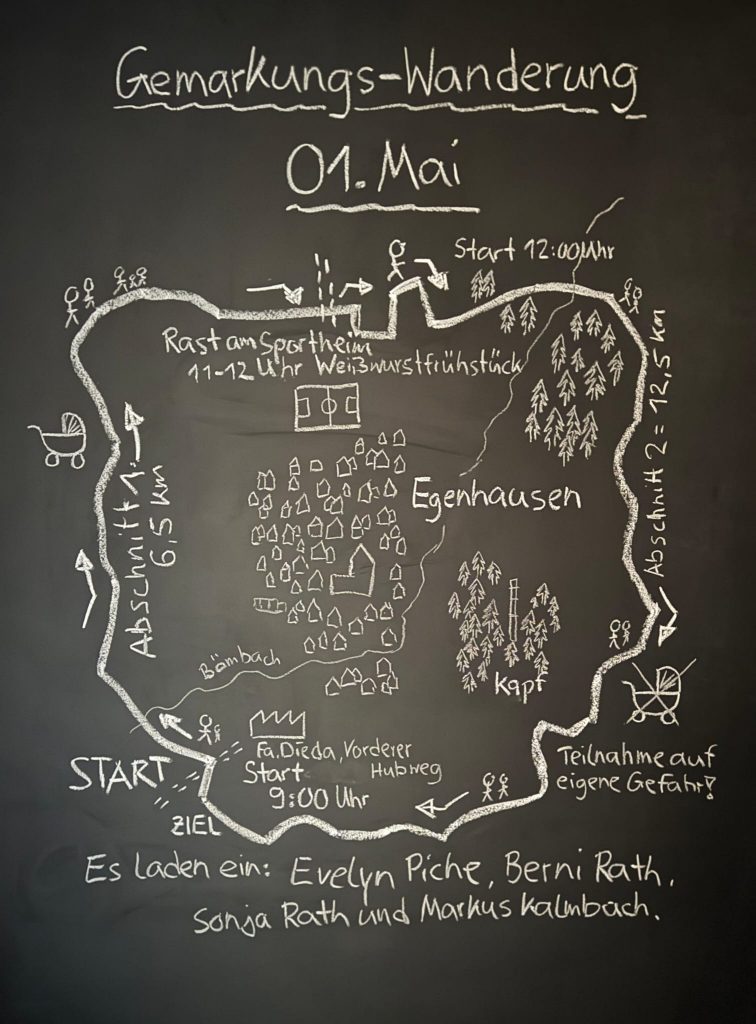 Gemarkungs-Wanderung
01. Mai
Start 12:00 Uhr
Rast am Sportheim
11-12 Uhr Weißwurstfrühstück
Abschnitt 1:
6,5 km
Abschnitt 2 = 12,5 km
Egenhausen
Bömbach
Kapf
START
ZIEL
Fa. Dieda, Vorderer
Hubweg
Start
9:00 Uhr
Teilnahme auf
eigene Gefahr!
Es laden ein: Evelyn Piche, Berni Rath,
Sonja Rath und Markus Kalmbach.